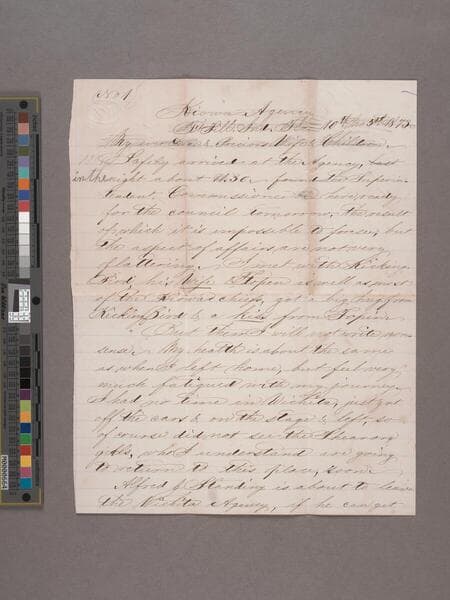 No 1
Kiowa Agency
10th mo 5th 1873
My precious Wife & Children,
I Safely arrived at the Agency, last
in the night about 11.30. found the Superin-
tendent, Commissioner &c here, ready
for the council tomorrow, the result
of which it is impossible to forsee, but
the aspect of affairs, are not very
flattering. I met with Kicking
Bird, his Wife, Topen as well as most
of the Kiowa chiefs, got a big hug from
Kicking Bird & a kiss from Topen.
But there I will not write non-
sense. My health is about the same
as when I left home, but feel very
much fatigued with my journey.
I had no time in Wichita, just got
off the cars & on the stage & left, so
of course did not see the
girls, who I understand are going
to return to this place, soon.
Alfred J Standing is about to leave
the Wichita Agency, if he can get